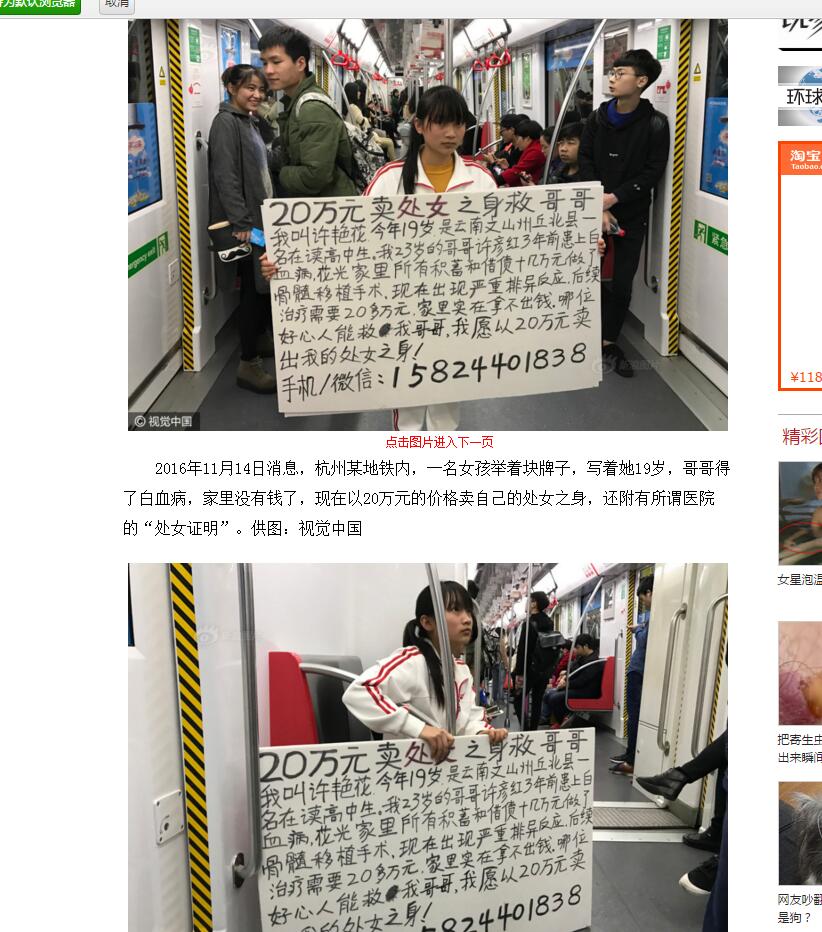 为默认浏览器
取消
20万元卖处女之身救哥哥
我叫许艳花今年19岁是云南文山州丘北县一
名在读高中生。我23岁的哥哥许彦红3年前患上白
血病，花光家里所有积蓄和借债十几万元做了
骨髓移植手术，现在出现严重排异反应，后续
治疗需要20多万元，家里实在拿不出钱，哪位
好心人能救我哥哥，我愿以20万元卖
出我的处女之身！
手机/微信：15824401838
emergency exit
紧急
© 视觉中国
点击图片进入下一页
2016年11月14日消息，杭州某地铁内，一名女孩举着块牌子，写着她19岁，哥哥得
了白血病，家里没有钱了，现在以20万元的价格卖自己的处女之身，还附有所谓医院
的“处女证明”。供图：视觉中国
20万元卖处女之身救哥哥
我叫许艳花今年19岁是云南文山州丘北县一
名在读高中生。我23岁的哥哥许彦红3年前患上白
血病，花光家里所有积蓄和借债十几万元做了
骨髓移植手术，现在出现严重排异反应，后续
治疗需要20多万元，家里实在拿不出钱，哪位
好心人能救我哥哥，我愿以20万元卖
出我的处女之身！
5824401838
环球
淘宝
Taobao.
¥118
精彩
女星泡温
把寄生虫
出来瞬间
网友吵翻
是狗？